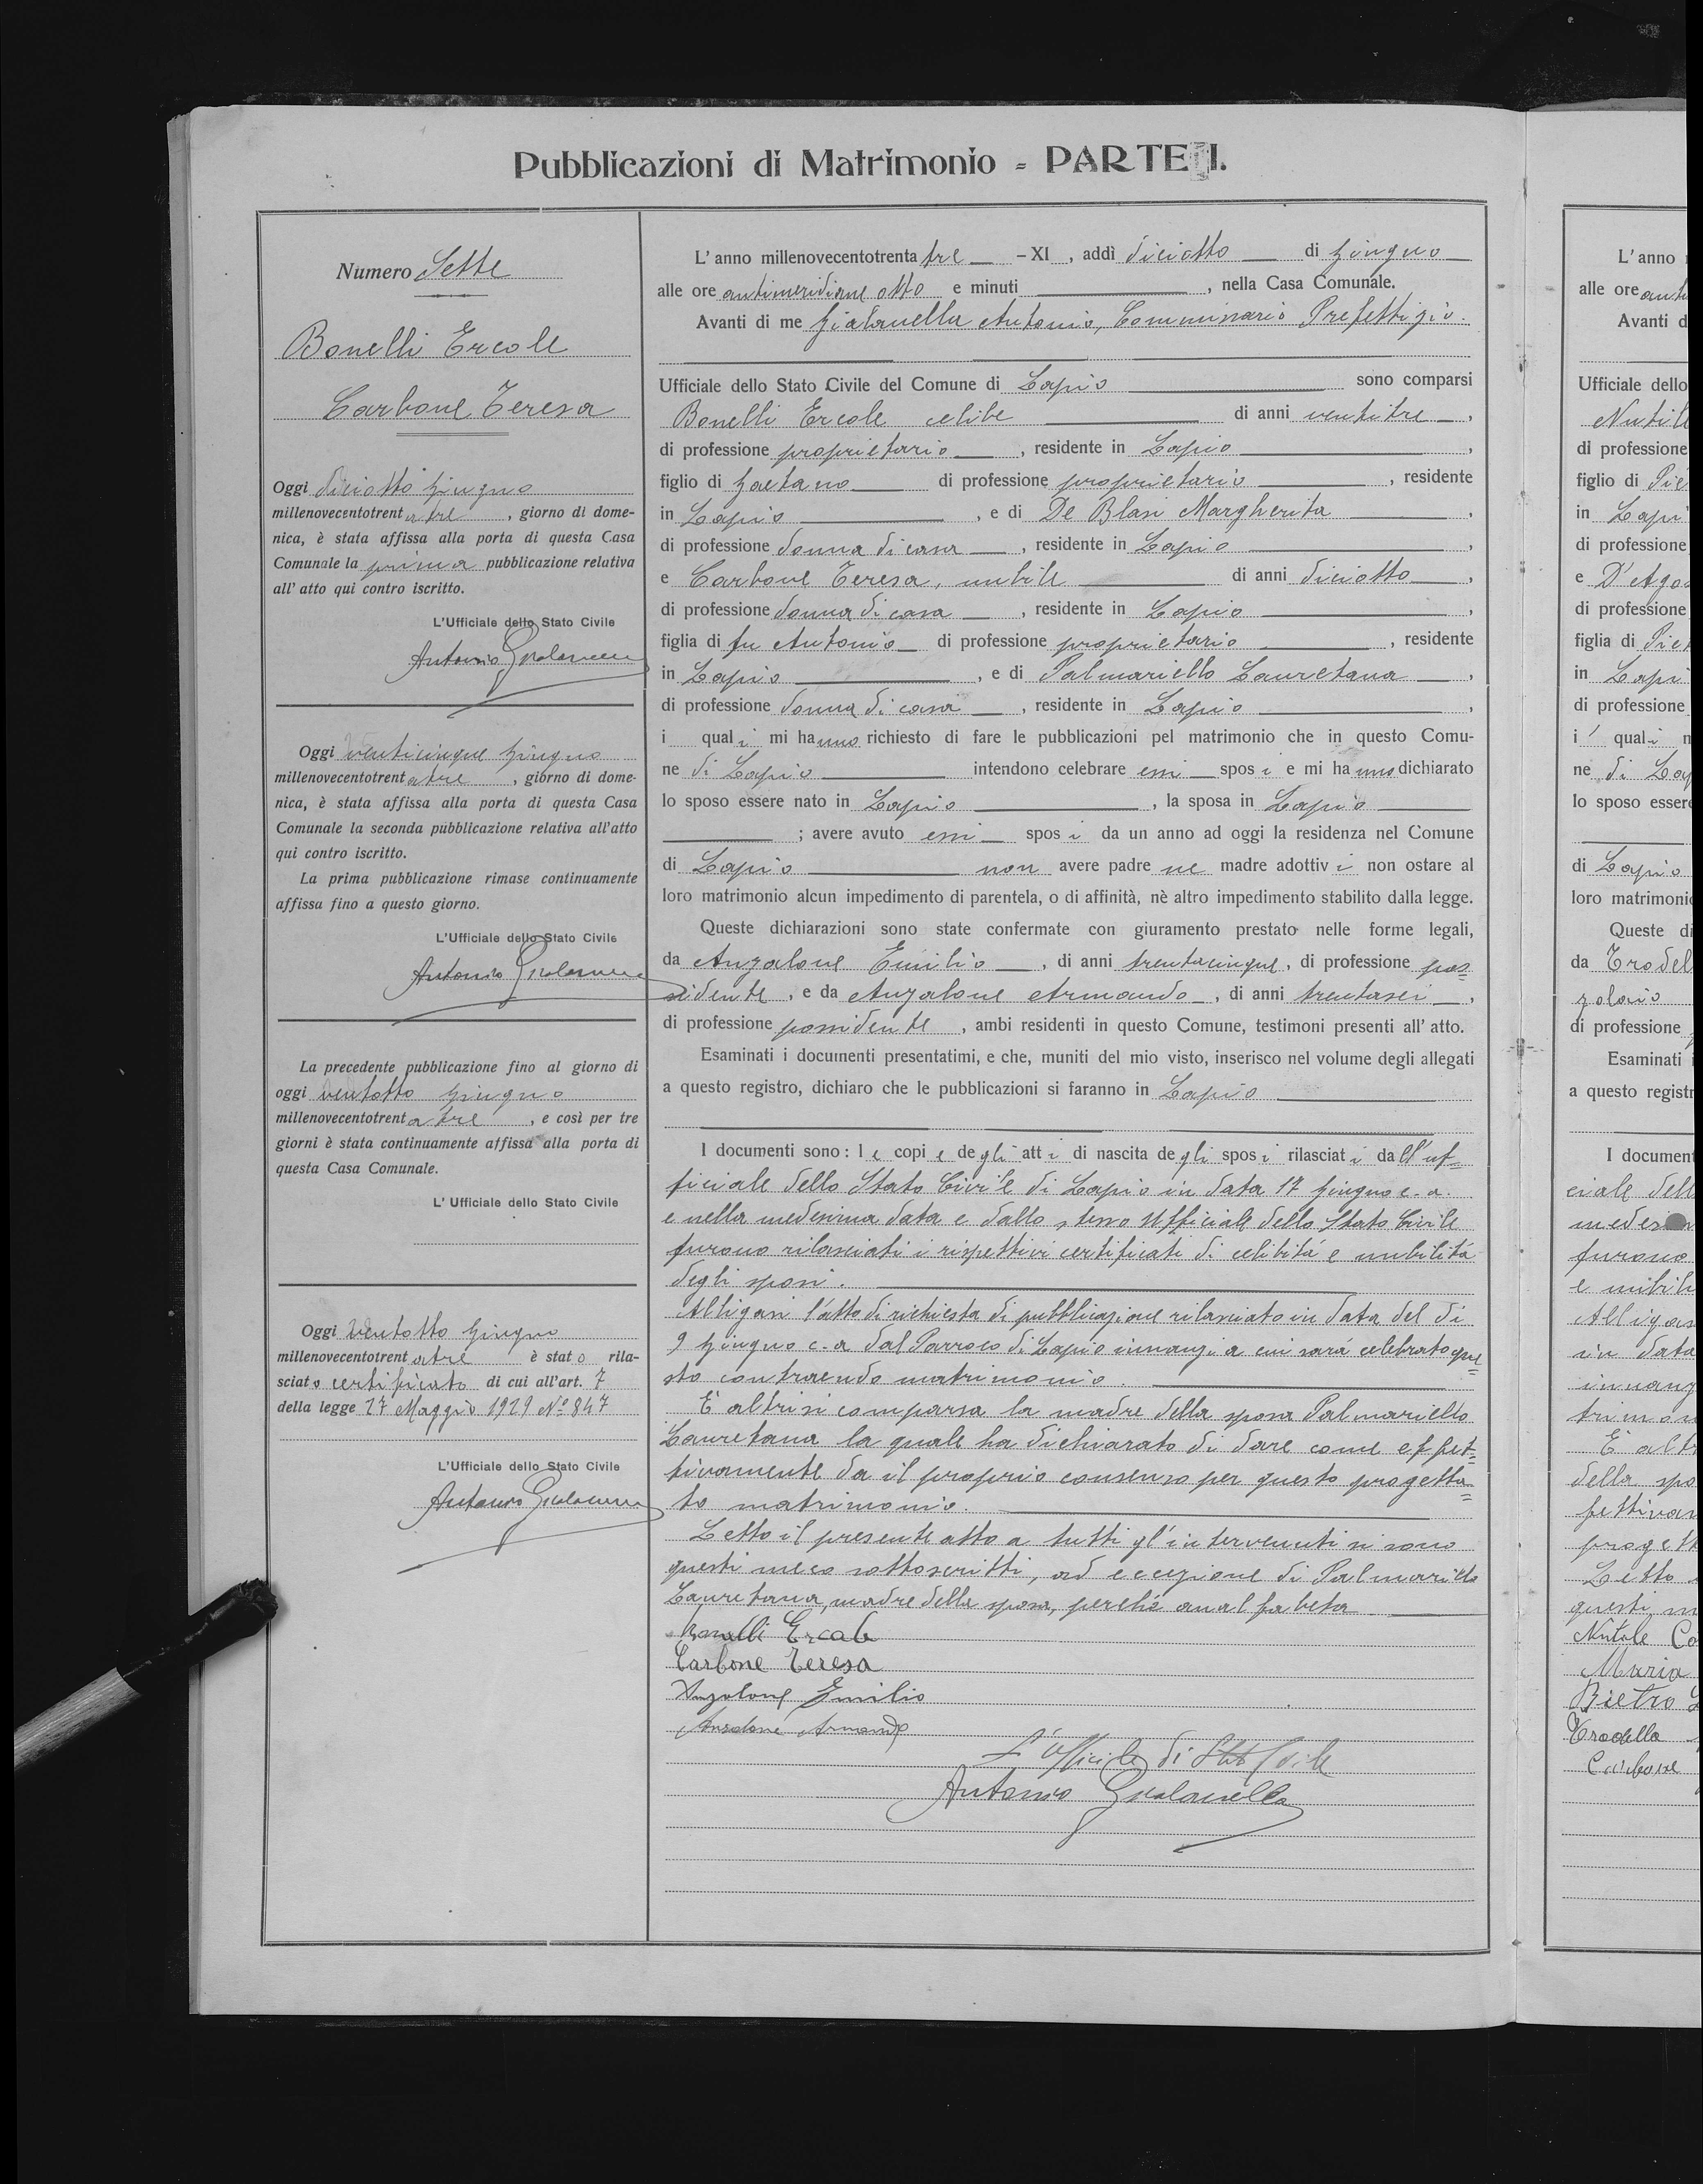 Pubblicazioni di Matrimonio - PARTE I.
Numero Sette
Bonelli Ercole
Carbone Teresa
Oggi diciotto giugno
millenovecentotrent atre , giorno di dome-
nica, è stata affissa alla porta di questa Casa
Comunale la prima pubblicazione relativa
all' atto qui contro iscritto.
L'Ufficiale dello Stato Civile
Antonio
Oggi venticinque giugno
millenovecentotrent atre , giorno di dome-
nica, è stata affissa alla porta di questa Casa
Comunale la seconda pubblicazione relativa all'atto
qui contro iscritto.
La prima pubblicazione rimase continuamente
affissa fino a questo giorno.
L'Ufficiale dello Stato Civile
Antonio
La precedente pubblicazione fino al giorno di
oggi ventotto giugno
millenovecentotrent atre , e così per tre
giorni è stata continuamente affissa alla porta di
questa Casa Comunale.
L' Ufficiale dello Stato Civile
Oggi ventotto giugno
millenovecentotrent atre è stat o rila-
sciat o certificato di cui all'art. 7
della legge 27 Maggio 1929 Nº 847
L'Ufficiale dello Stato Civile
Antonio
L' anno millenovecentotrenta tre - XI , addì diciotto di giugno
alle ore antimeridiane otto e minuti , nella Casa Comunale.
Avanti di me Antonio, Commissario Prefettizio.
Ufficiale dello Stato Civile del Comune di Lapio sono comparsi
Bonelli Ercole celibe di anni ventitre ,
di professione proprietario , residente in Lapio ,
figlio di Gaetano di professione proprietario , residente
in Lapio , e di De Blasi Margherita ,
di professione donna di casa , residente in Lapio ,
e Carbone Teresa, nubile di anni diciotto ,
di professione donna di casa , residente in Lapio ,
figlia di fu Antonio di professione proprietario , residente
in Lapio , e di Palmariello Lauretana ,
di professione donna di casa , residente in Lapio ,
i qual i mi ha nno richiesto di fare le pubblicazioni pel matrimonio che in questo Comu-
ne di Lapio intendono celebrare essi spos i e mi ha nno dichiarato
lo sposo essere nato in Lapio , la sposa in Lapio
; avere avuto essi spos i da un anno ad oggi la residenza nel Comune
di Lapio non avere padre ne madre adottiv i non ostare al
loro matrimonio alcun impedimento di parentela, o di affinità, nè altro impedimento stabilito dalla legge.
Queste dichiarazioni sono state confermate con giuramento prestato nelle forme legali,
da Anzalone Emilio , di anni trentacinque , di professione pos=
sidente , e da Anzalone Armando , di anni trentasei ,
di professione possidente , ambi residenti in questo Comune, testimoni presenti all' atto.
Esaminati i documenti presentatimi, e che, muniti del mio visto, inserisco nel volume degli allegati
a questo registro, dichiaro che le pubblicazioni si faranno in Lapio
I documenti sono: l e copi e de gli att i di nascita de gli spos i rilasciat i da ll'uf=
ficiale dello Stato Civile di Lapio in data 17 giugno c. a.
e nella medesima data e dallo stesso Ufficiale dello Stato Civile
furono rilasciati i rispettivi certificati di celibità e nubilità
degli sposi.
Alligasi l'atto di richiesta di pubblicazione rilasciato in data del dì
9 giugno c. a dal Parroco di Lapio innanzi a cui sarà celebrato que
sto contraendo matrimonio.
È altrisi comparsa la madre della sposa Palmariello
Lauretana la quale ha dichiarato di dare come effet=
tivamente da il proprio consenso per questo progetta=
to matrimonio.
Letto il presente atto a tutti gl'intervenuti si sono
questi meco sottoscritti, ad eccezione di Palmariello
Lauretana, madre della sposa, perchè analfabeta
Bonelli Ercole
Carbone Teresa
Anzalone Emilio
Anzalone Armando
L'Ufficiale di Stato Civile
Antonio
L' anno
alle ore
Avanti d
Ufficiale dello
di professione
figlio di Pie
in Lapi
di professione
e D'Ago
di professione
figlia di Piet
in Lapi
di professione
i qual i n
ne di Lap
lo sposo esser
di Lapio
loro matrimoni
Queste di
da Trodel
zolaio
di professione
Esaminati i
a questo registr
I document
ciale dell
furono
e nubili
Alligas
in data
innanz
trimon
È alt
della spo
fettivam
progett
Letto
questi m
Maria
Pietro
Trodella
Carbone